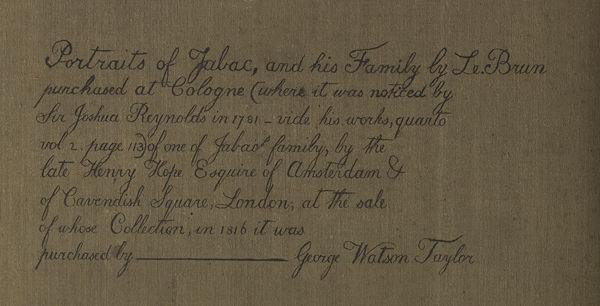 Portraits of Jabac, and his Family by Le.Brun
purchased at Cologne (where it was noticed by
Sir Joshua Reynolds in 1781 – vide his works, quarto
vol 2. page 113) of one of Jabac's family, by the
late Henry Hope Esquire of Amsterdam &
of Cavendish Square, London; at the sale
of whose Collection, in 1816 it was
purchased by ——— George Watson Taylor